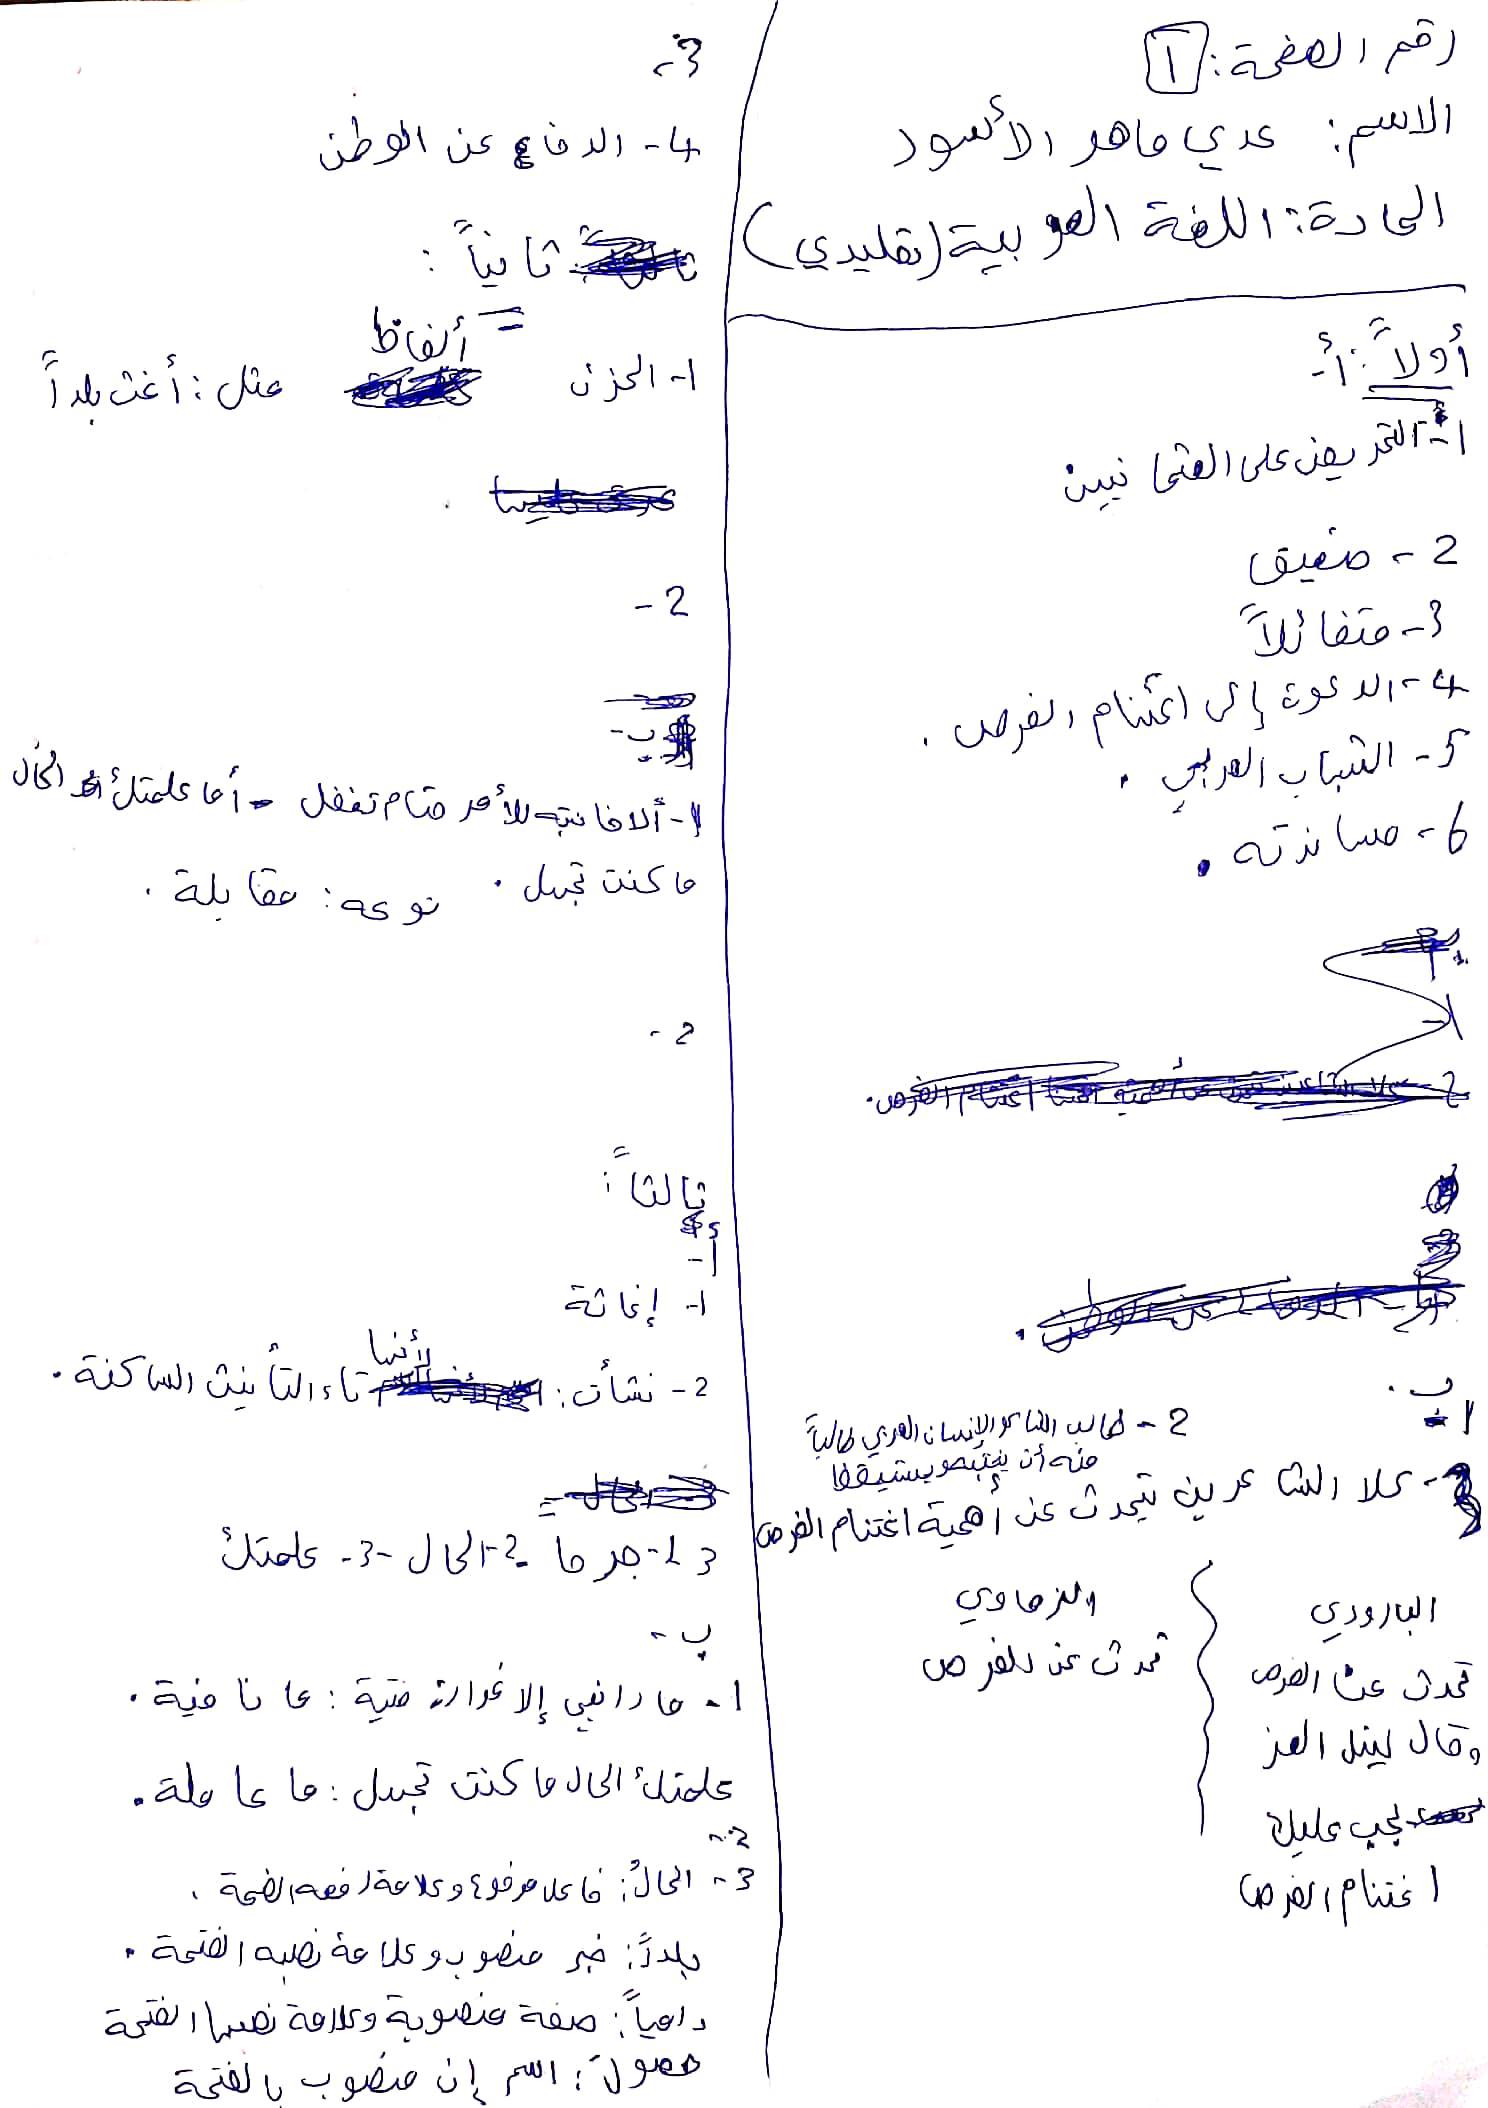 رقم الصفحة: 1
الاسم: عدي ماهر الأسود
المادة: اللغة العربية (تقليدي)
أولاً: أ-
1- التحريض على العثمانيين
2- صفيق
3- متفائلاً
4- الدعوة إلى اغتنام الفرص.
5- الشباب العربي.
6- مساندته.
ب.
1-
2- طالب الشاعر الإنسان العربي طالباً
منه أن ينتبه ويستيقظ
3- كلا الشاعرين تتحدث عن أهمية اغتنام الفرص
البارودي
تحدث عن الفرص
وقال لينل العز
يجب عليك
اغتنام الفرص
والزهاوي
تحدث عن الفرص
3-
4- الدفاع عن الوطن
ثانياً:
1- الحزن ألفاظ مثل: أغث بلداً
2-
ب-
1- ألا فانتبه للأمر حتام تغفل - أما علمتك الحال
ما كنت تجهل. نوعه: مقابلة.
2-
ثالثاً:
أ-
1- إغاثة
2- نشأت: لأنها تاء التأنيث الساكنة.
3 1- جرما 2- الحال 3- علمتك
ب-
1- ما رابني إلا غرارة فتية: ما نافية.
علمتك الحال ما كنت تجهل: ما عاملة.
2-
3- الحالُ: فاعل مرفوع وعلامة رفعه الضمة.
بلداً: خبر منصوب وعلامة نصبه الفتحة.
داهياً: صفة منصوبة وعلامة نصبها الفتحة
حصولَ: اسم إن منصوب بالفتحة